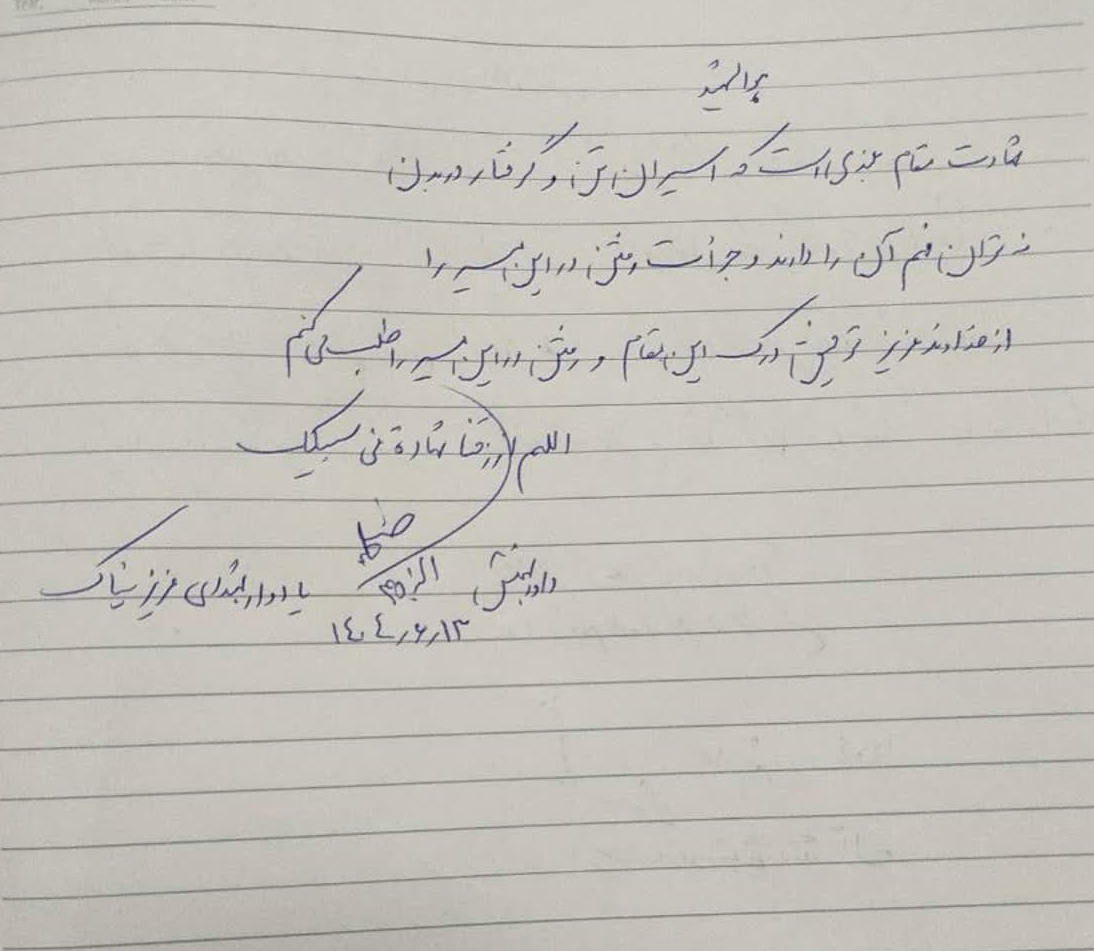 هوالشهید
شهادت مقام بلندی است که اسیران تن و گرفتار در بدن
نه توان فهم آن را دارند و جرأت رفتن در این مسیر را
از خداوند عزیز توفیق درک این مقام و رفتن در این مسیر را طلب می کنم
اللهم ارزقنا شهادة فی سبیلک
داود بهمنش
یادواره شهدای عزیز نیاک
۱۴۰۴/۶/۱۳